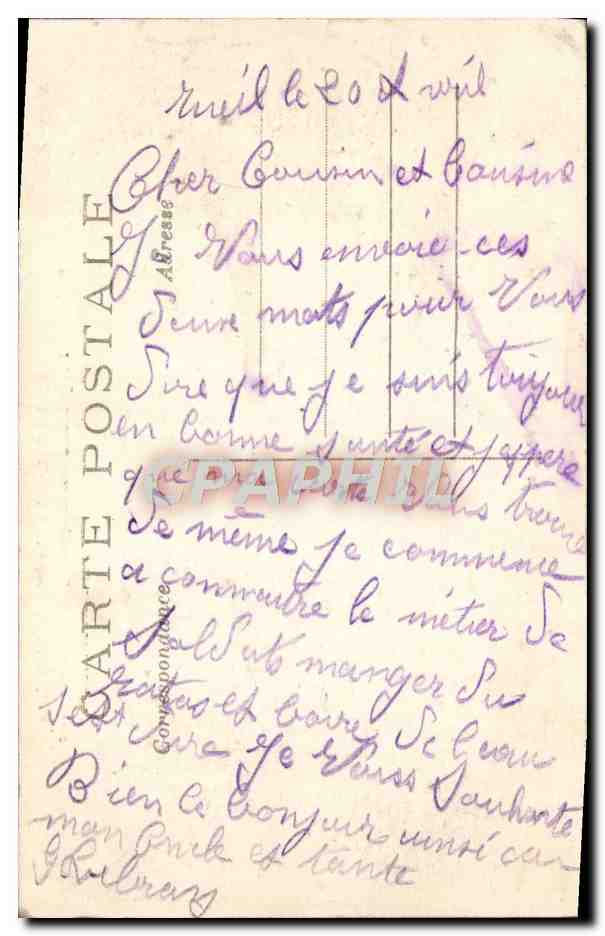 rueil le 20 Avril
Cher Cousin et Cousine
Je Vous envoie ces
deux mots pour Vous
dire que je suis toujour
en bonne santé et j'espere
que ma carte Vous trouve
de même je commence
a connaitre le métier de
Soldat manger du
ratas et boire de l'eau
sest dure Je Vous Souhaite
Bien le bonjour ainsi ca
mon Oncle et tante
CARTE POSTALE
Adresse
Correspondance
CPAPHIL